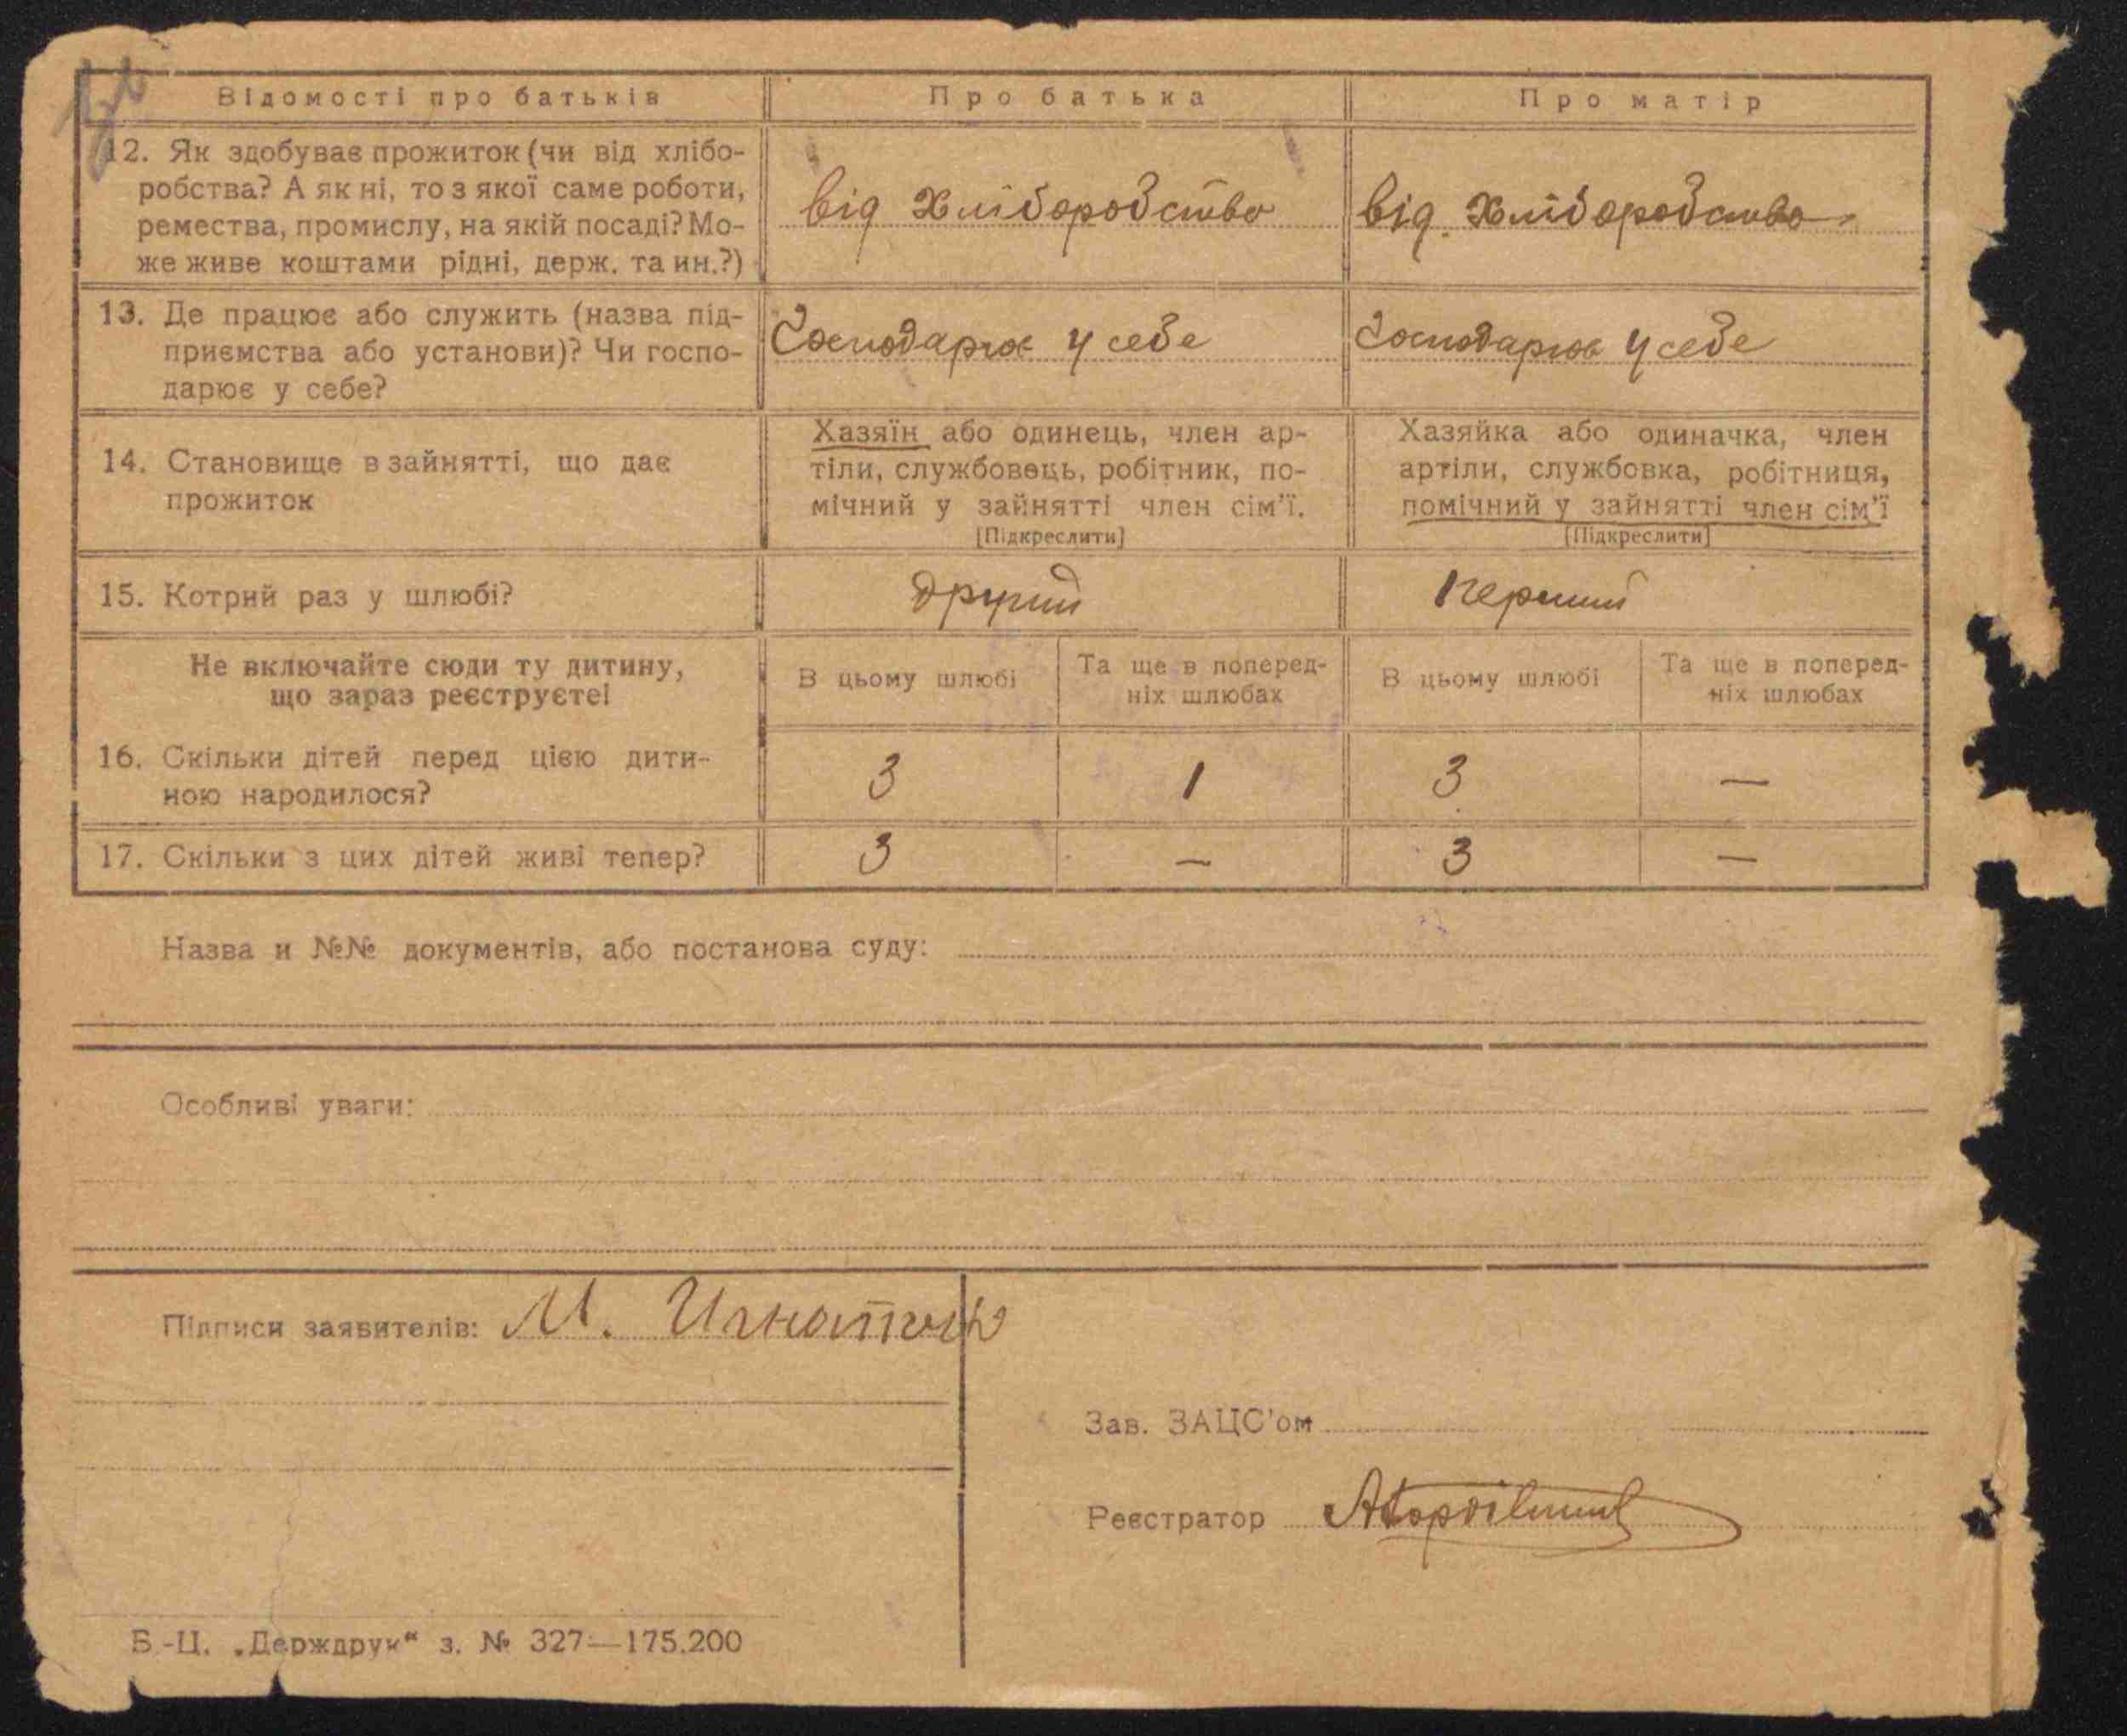 Відомості про батьків
Про батька
Про матір
12. Як здобуває прожиток (чи від хлібо-
робства? А як ні, то з якої саме роботи,
ремества, промислу, на якій посаді? Мо-
же живе коштами рідні, держ. та ин.?)
від Хліборобство
від. Хліборобство
13. Де працює або служить (назва під-
приємства або установи)? Чи госпо-
дарює у себе?
Господарює у себе
Господарює у себе
14. Становище в зайнятті, що дає
прожиток
Хазяїн або одинець, член ар-
тіли, службовець, робітник, по-
мічний у зайнятті член сім'ї.
[Підкреслити]
Хазяйка або одиначка, член
артіли, службовка, робітниця,
помічний у зайнятті член сім'ї
[Підкреслити]
15. Котрий раз у шлюбі?
другий
перший
Не включайте сюди ту дитину,
що зараз реєструєте!
В цьому шлюбі
Та ще в поперед-
ніх шлюбах
В цьому шлюбі
Та ще в поперед-
ніх шлюбах
16. Скільки дітей перед цією дити-
ною народилося?
3
1
3
—
17. Скільки з цих дітей живі тепер?
3
—
3
—
Назва и №№ документів, або постанова суду:
Особливі уваги:
Підписи заявителів: И.
Зав. ЗАЦС'ом
Реєстратор
Б.-Ц. „Держдрук“ з. № 327—175.200